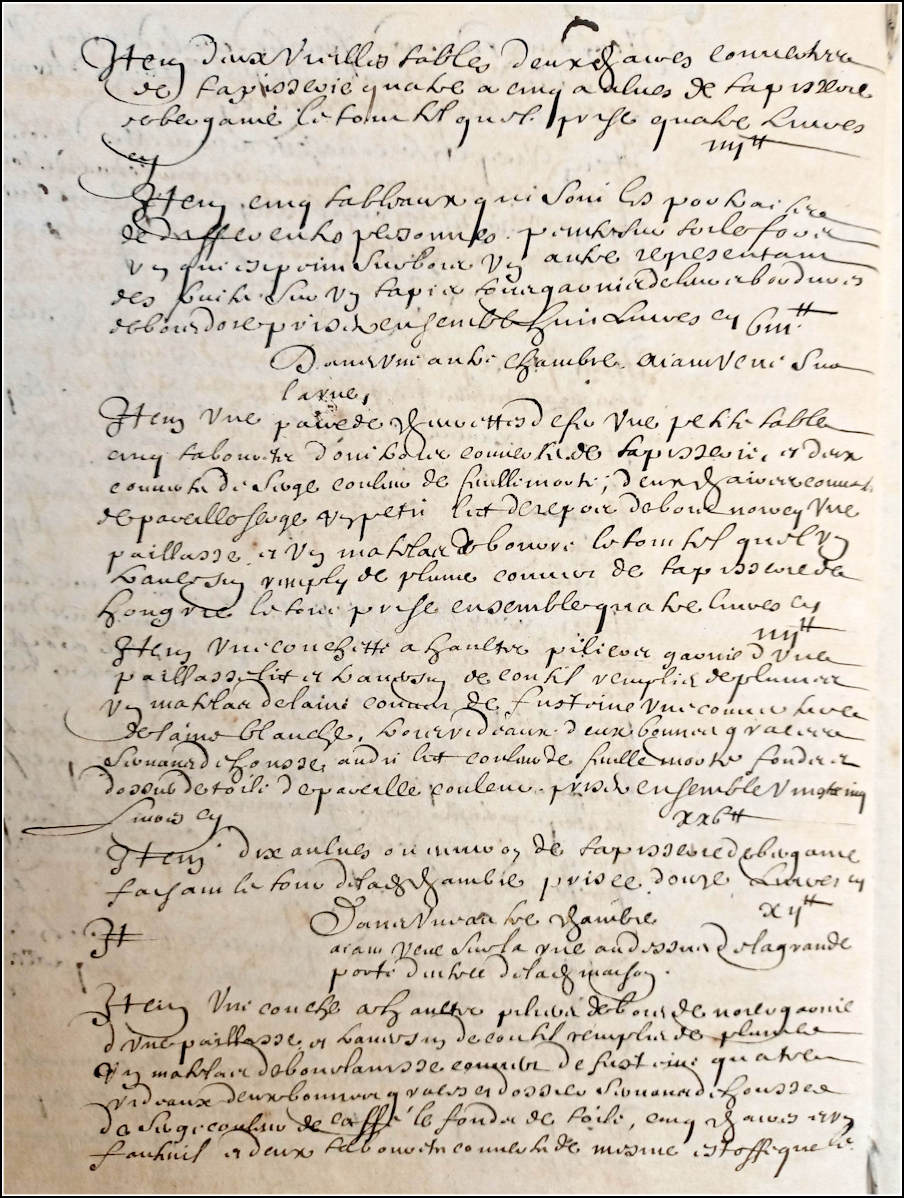 Item deux vieilles tables deux chaires couvertes
de tapisserie quatre a cinq aulnes de tapisserie
de bergame le tout tel quel prisé quatre livres
cy iiij tt
Item cinq tableaux qui sont les pourtraicts
de differentes personnes peint sur toile fors
un qui est peint sur bois un autre representant
des sur un tapis tous garnis de leurs bordures
de bois doré prisés ensemble huit livres cy viij tt
Dans une autre chambre aiant veue sur
la rue,
Item une paire de chenettes de fer une petite table
cinq tabourets dont trois couverts de tapisserie, et deux
couverts de serge couleur de feuille morte, deux chaires couvertes
de pareille serge un petit lict de repos de bois noircy une
paillasse et un matelas de bourre le tout tel quel un
traversin remply de plume couvert de tapisserie de
hongrie le tout prisé ensemble quatre livres cy
iiij tt
Item une couchette a haults piliers garnie d'une
paillasse lit et traversin de coutil remplis de plumes
un matelas de laine couvert de fustaine une couverture
de laine blanche, trois rideaux deux bonnes graces
servant de housse audit lict couleur de feuille morte fonds et
dossier de toile de pareille couleur prisés ensemble vingt cinq
livres cy xxv tt
Item dix aulnes ou environ de tapisserie de bergame
faisant le tour de lad chambre prisée douze livres cy
xij tt
It Dans une autre chambre
aiant veue sur la rue au dessus de la grande
porte d'entrée de lad maison.
Item une couche a haults piliers de bois de noier garnie
d'une paillasse et traversin de coutil remplis de plume
un matelas de bourlanisse couvert de fustaine quatre
rideaux deux bonnes graces et dossier servant de housse
de serge couleur de caffé le fonds de toile, cinq chaires et un
fauteuil et deux tabourets couverts de mesme estoffe que le